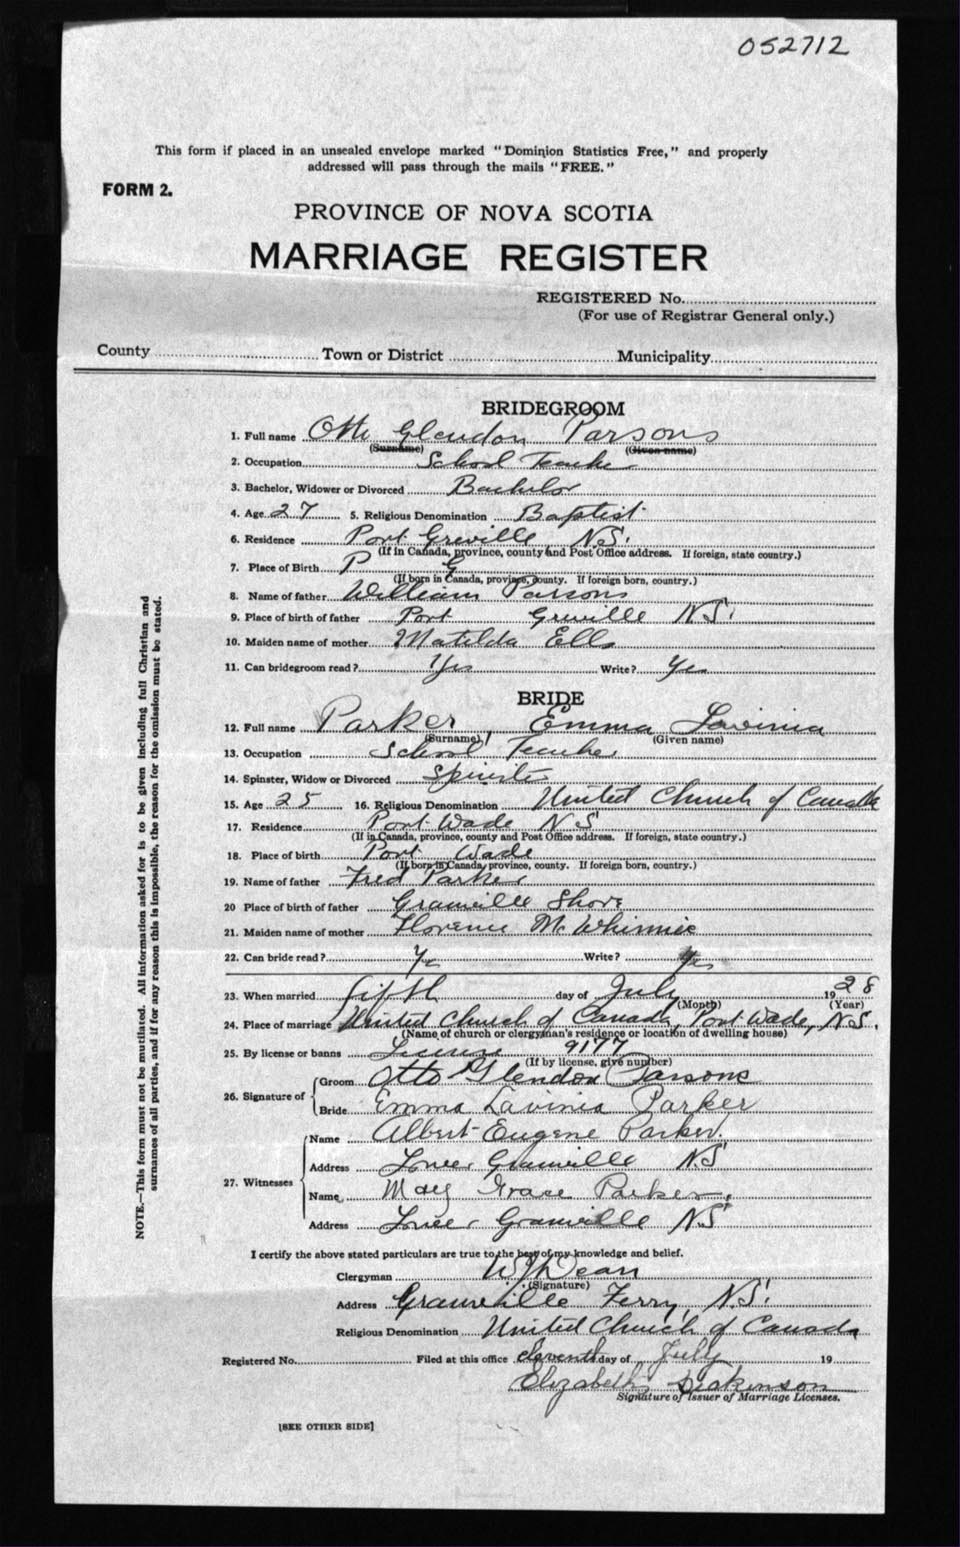 052712
This form if placed in an unsealed envelope marked "Dominion Statistics Free," and properly
addressed will pass through the mails "FREE."
FORM 2.
PROVINCE OF NOVA SCOTIA
MARRIAGE REGISTER
REGISTERED No.
(For use of Registrar General only.)
County Town or District Municipality
BRIDEGROOM
1. Full name Otto Glendon Parsons
(Surname) (Given name)
2. Occupation School Teacher
3. Bachelor, Widower or Divorced Bachelor
4. Age 27 5. Religious Denomination Baptist
6. Residence Port Greville N.S.
(If in Canada, province, county and Post Office address. If foreign, state country.)
7. Place of Birth P G
(If born in Canada, province, county. If foreign born, country.)
8. Name of father William Parsons
9. Place of birth of father Port Greville N.S.
10. Maiden name of mother Matilda Ells
11. Can bridegroom read? Yes Write? Yes
BRIDE
12. Full name Parker, Emma Lavinia
(Surname) (Given name)
13. Occupation School Teacher
14. Spinster, Widow or Divorced Spinster
15. Age 25 16. Religious Denomination United Church of Canada
17. Residence Port Wade N S
(If in Canada, province, county and Post Office address. If foreign, state country.)
18. Place of birth Port Wade
(If born in Canada, province, county. If foreign born, country.)
19. Name of father Fred Parker
20 Place of birth of father Granville Shore
21. Maiden name of mother Florence McWhinnie
22. Can bride read? Yes Write? Yes
23. When married fifth day of July 1928
(Month) (Year)
24. Place of marriage United Church of Canada, Port Wade, N.S.
(Name of church or clergyman's residence or location of dwelling house)
25. By license or banns License 9177
(If by license, give number)
26. Signature of Groom Otto Glendon Parsons
Bride Emma Lavinia Parker
27. Witnesses Name Albert Eugene Parker
Address Lower Granville N.S
Name May Grace Parker
Address Lower Granville N.S
I certify the above stated particulars are true to the best of my knowledge and belief.
Clergyman W J Dean
(Signature)
Address Granville Ferry, N.S.
Religious Denomination United Church of Canada
Registered No. Filed at this office eleventh day of July 19
Elizabeth Deakinson
Signature of Issuer of Marriage Licenses.
[SEE OTHER SIDE]
NOTE.—This form must not be mutilated. All information asked for is to be given including full Christian and
surnames of all parties, and if for any reason this is impossible, the reason for the omission must be stated.